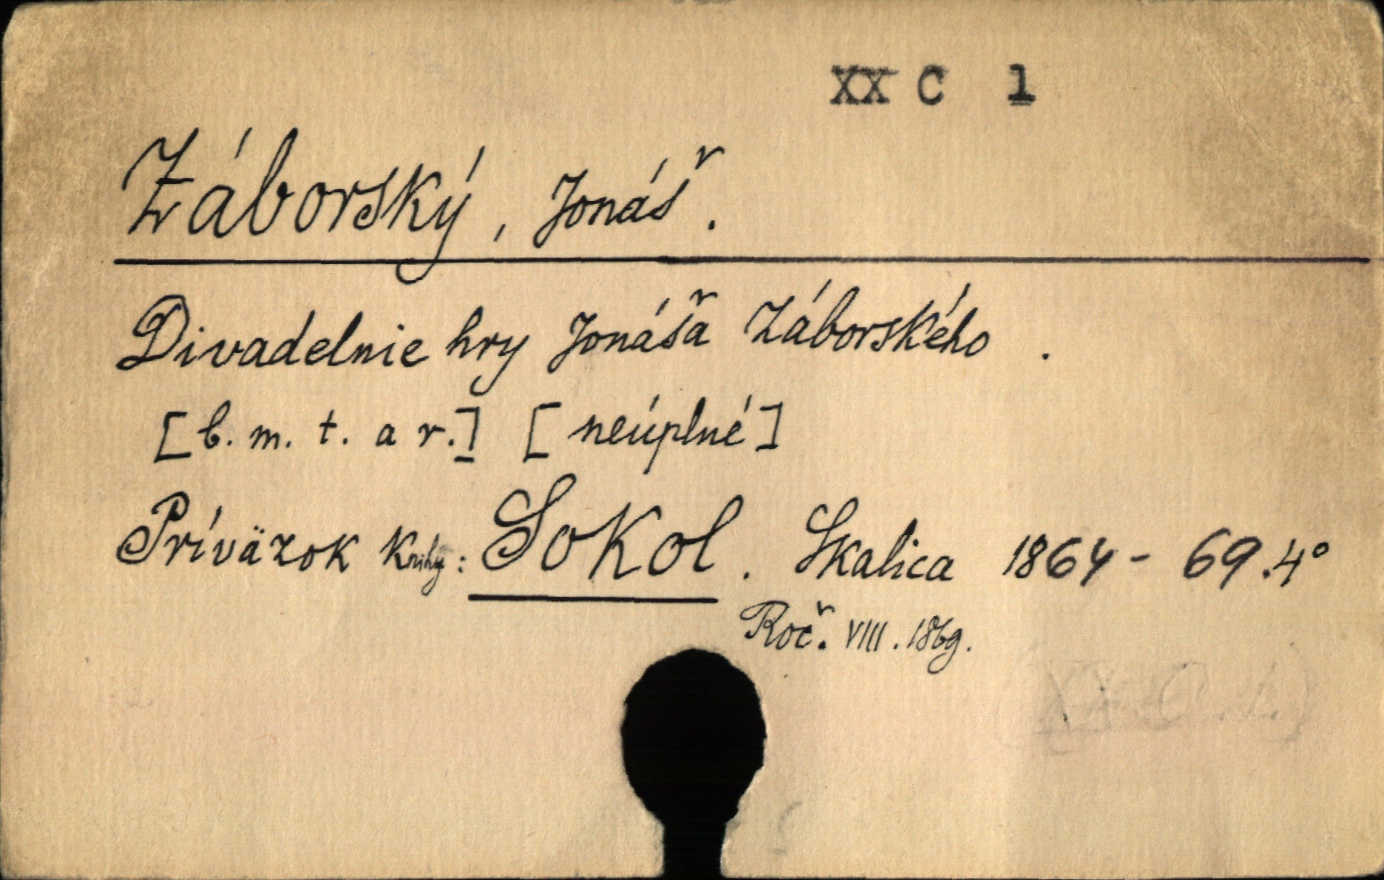 XX C 1
Záborský, Jonáš.
Divadelnie hry Jonáša Záborského.
[b. m. t. a r.] [neúplné]
Príväzok knihy: Sokol. Skalica 1864-69. 4°
Roč. VIII. 1869.
(XX C 1.)